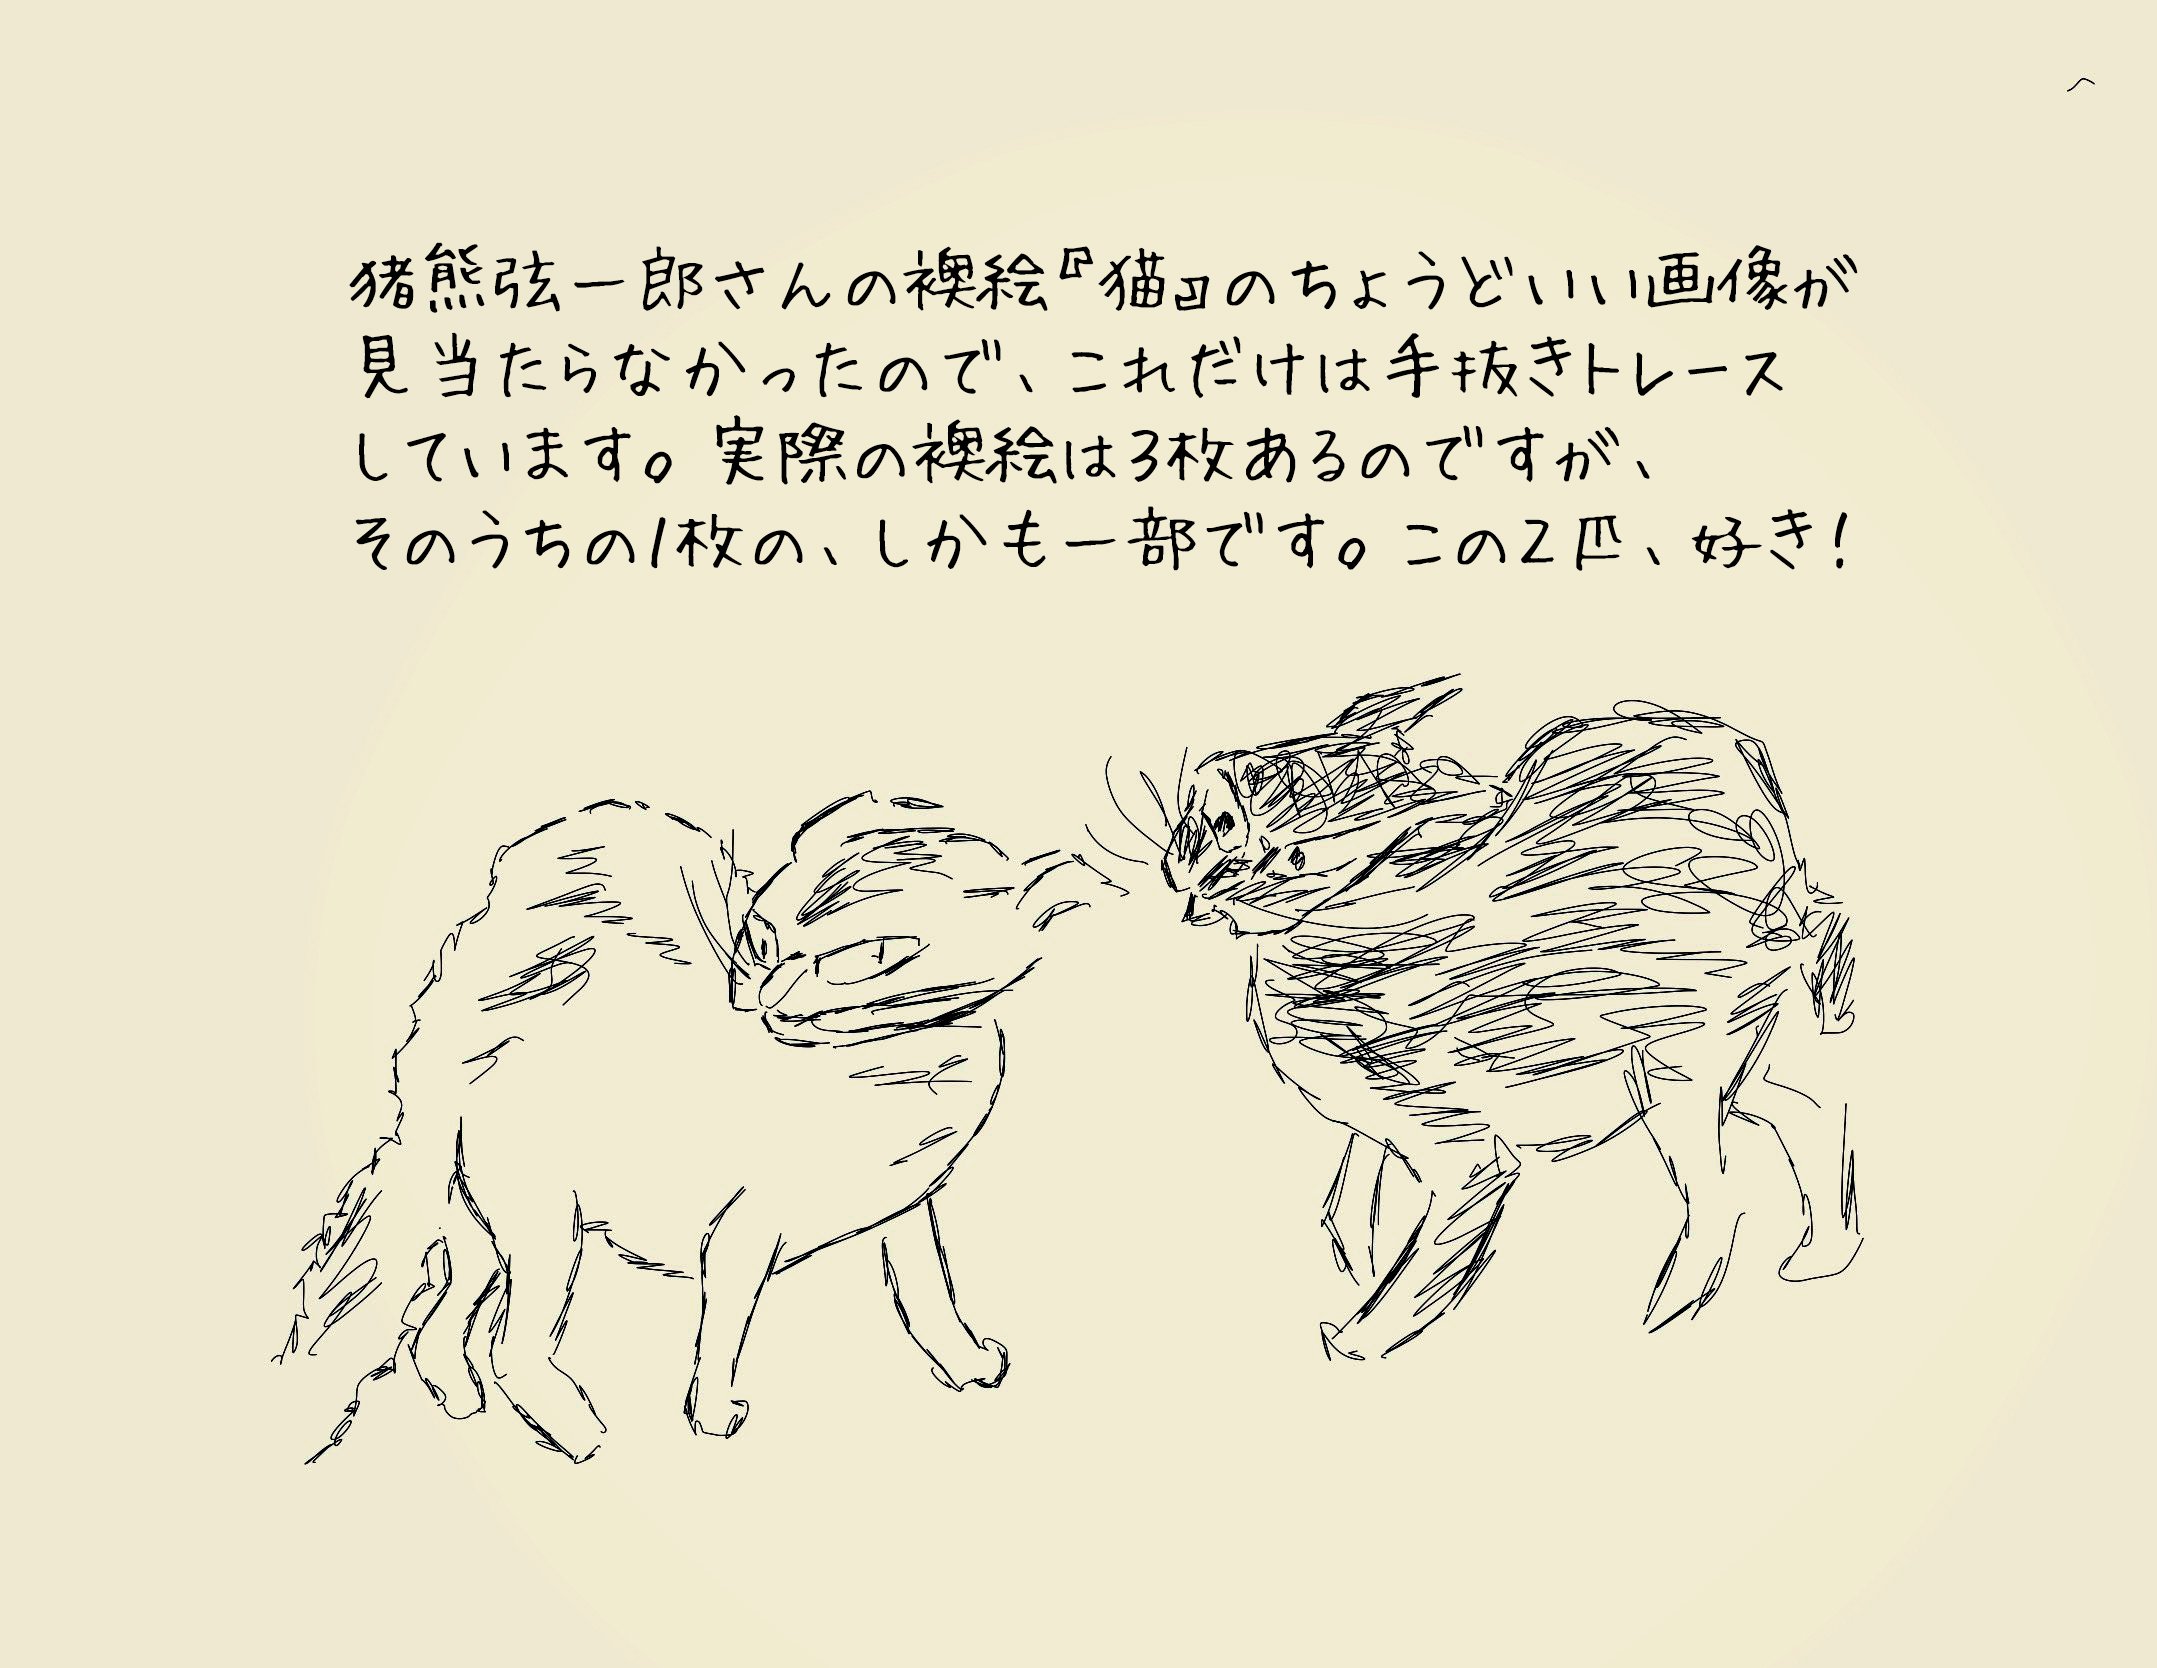 猪熊弦一郎さんの襖絵『猫』のちょうどいい画像が
見当たらなかったので、これだけは手抜きトレース
しています。実際の襖絵は3枚あるのですが、
そのうちの1枚の、しかも一部です。この2匹、好き!